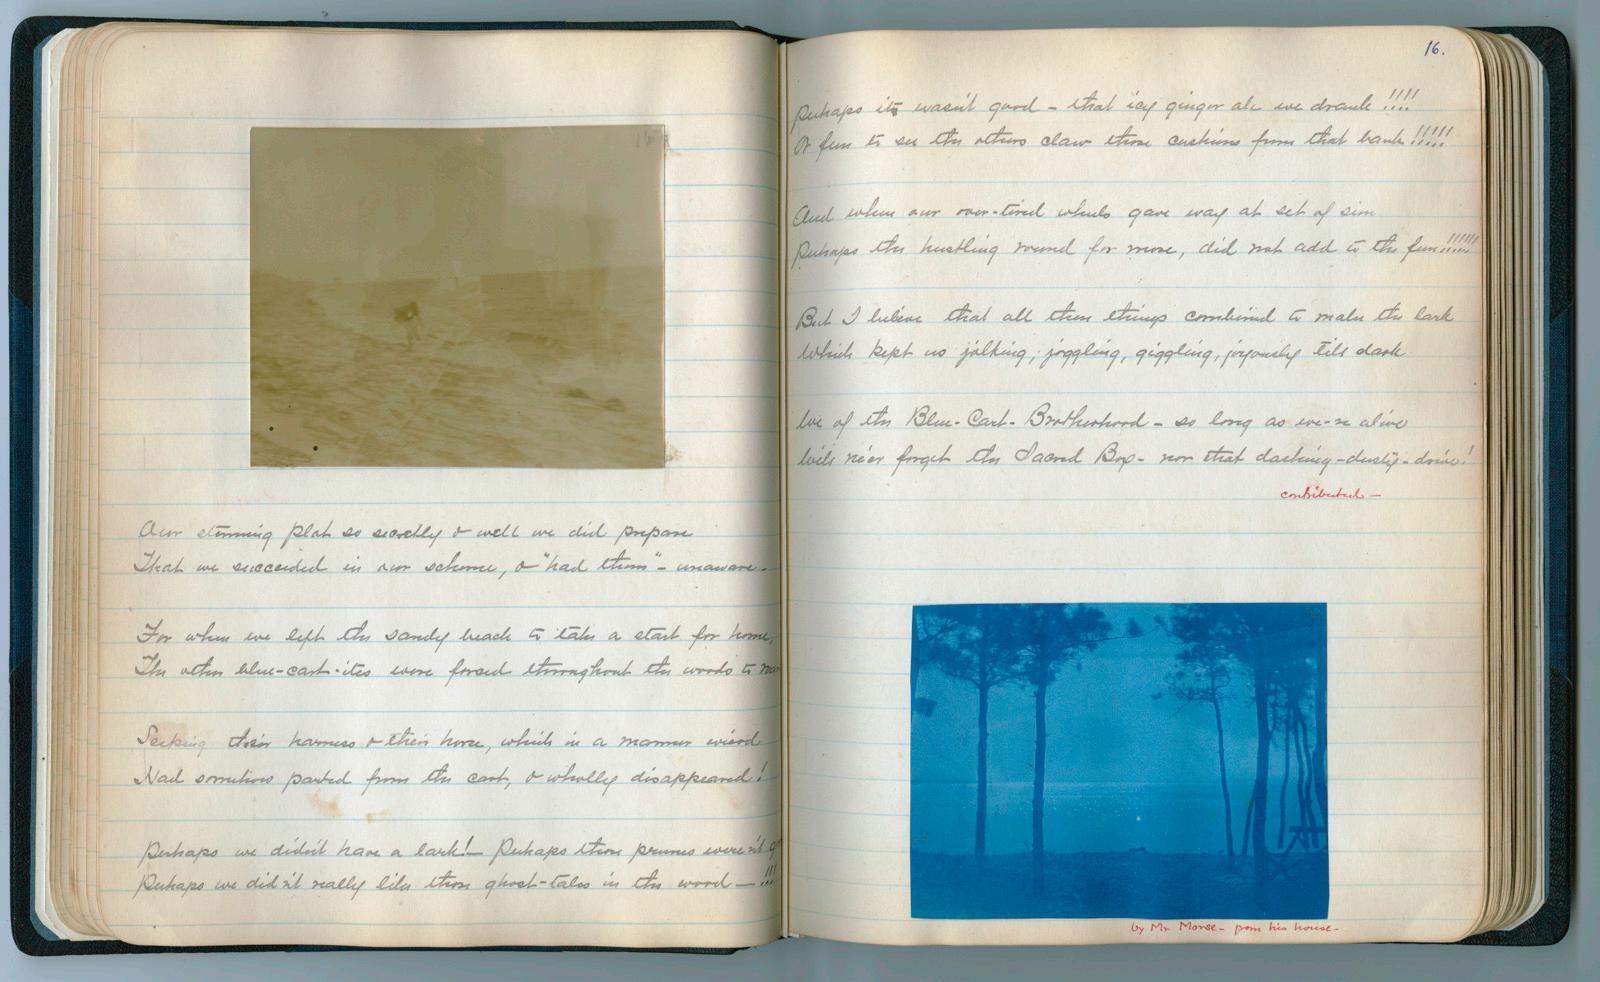 Our stunning plot so secretly & well we did prepare
That we succeeded in our scheme, & "had them" - unaware -
For when we left the sandy beach to take a start for home,
The other blue-cart-ites were forced throughout the woods to
Seeking their harness & their horse, which in a manner wierd
Had somehow parted from the cart, & wholly disappeared!
Perhaps we didn't have a lark! - Perhaps those prunes weren't
Perhaps we didn't really like those ghost-tales in the wood - !!!
16.
Perhaps it wasn't good - that icy ginger ale we drank !!!!
Or fun to see the others claw those cushions from that bank !!!!!
And when our over-tired wheels gave way at set of sun
Perhaps the hustling round for more, did not add to the fun!!!!!!
But I believe that all these things combined to make the lark
Which kept us jolking, joggling, giggling, joyously till dark
We of the Blue-Cart-Brotherhood - so long as we-re alive
Will ne'er forget the Sacred Box - nor that dashing-dusty-drive!
contributed -
by Mr Morse - from his house -